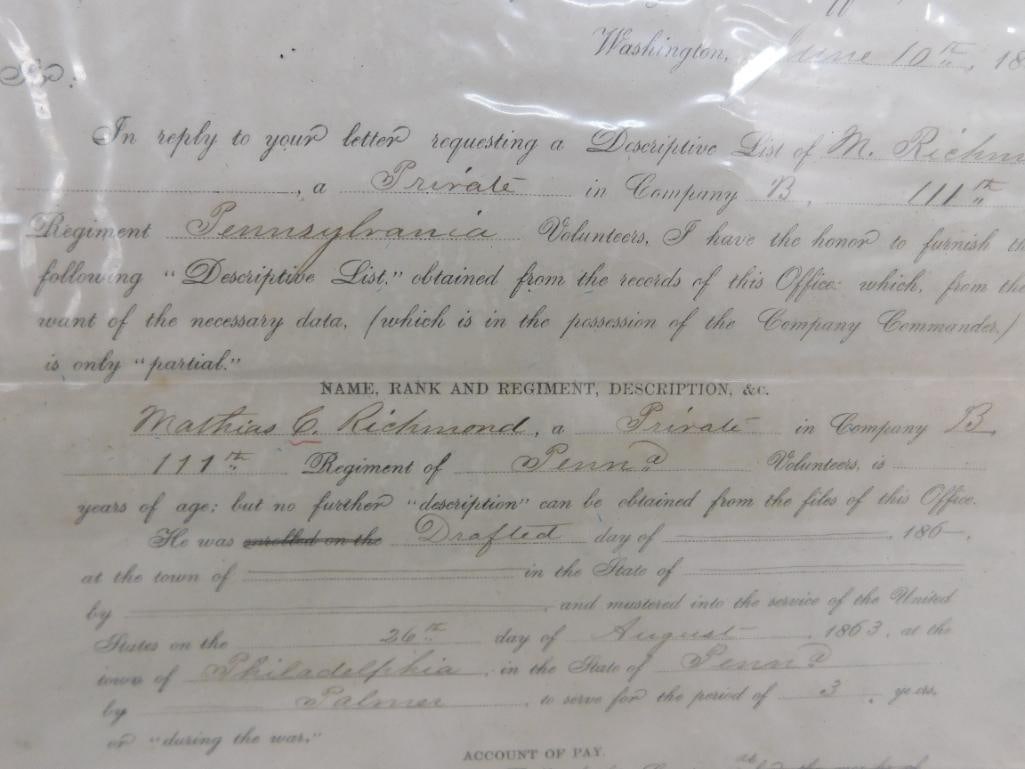 Washington, June 10th, 18
In reply to your letter requesting a Descriptive List of M. Richm
, a Private in Company B, 111th
Regiment Pennsylvania Volunteers, I have the honor to furnish th
following "Descriptive List," obtained from the records of this Office: which, from the
want of the necessary data, (which is in the possession of the Company Commander,)
is only "partial."
NAME, RANK AND REGIMENT, DESCRIPTION, &c.
Mathias C. Richmond, a Private in Company B,
111th Regiment of Penna Volunteers, is
years of age; but no further "description" can be obtained from the files of this Office.
He was enrolled on the Drafted day of , 186 .
at the town of in the State of
by , and mustered into the service of the United
States on the 26th day of August , 1863, at the
town of Philadelphia , in the State of Penna
by Palmer , to serve for the period of 3 , years,
or "during the war."
ACCOUNT OF PAY.